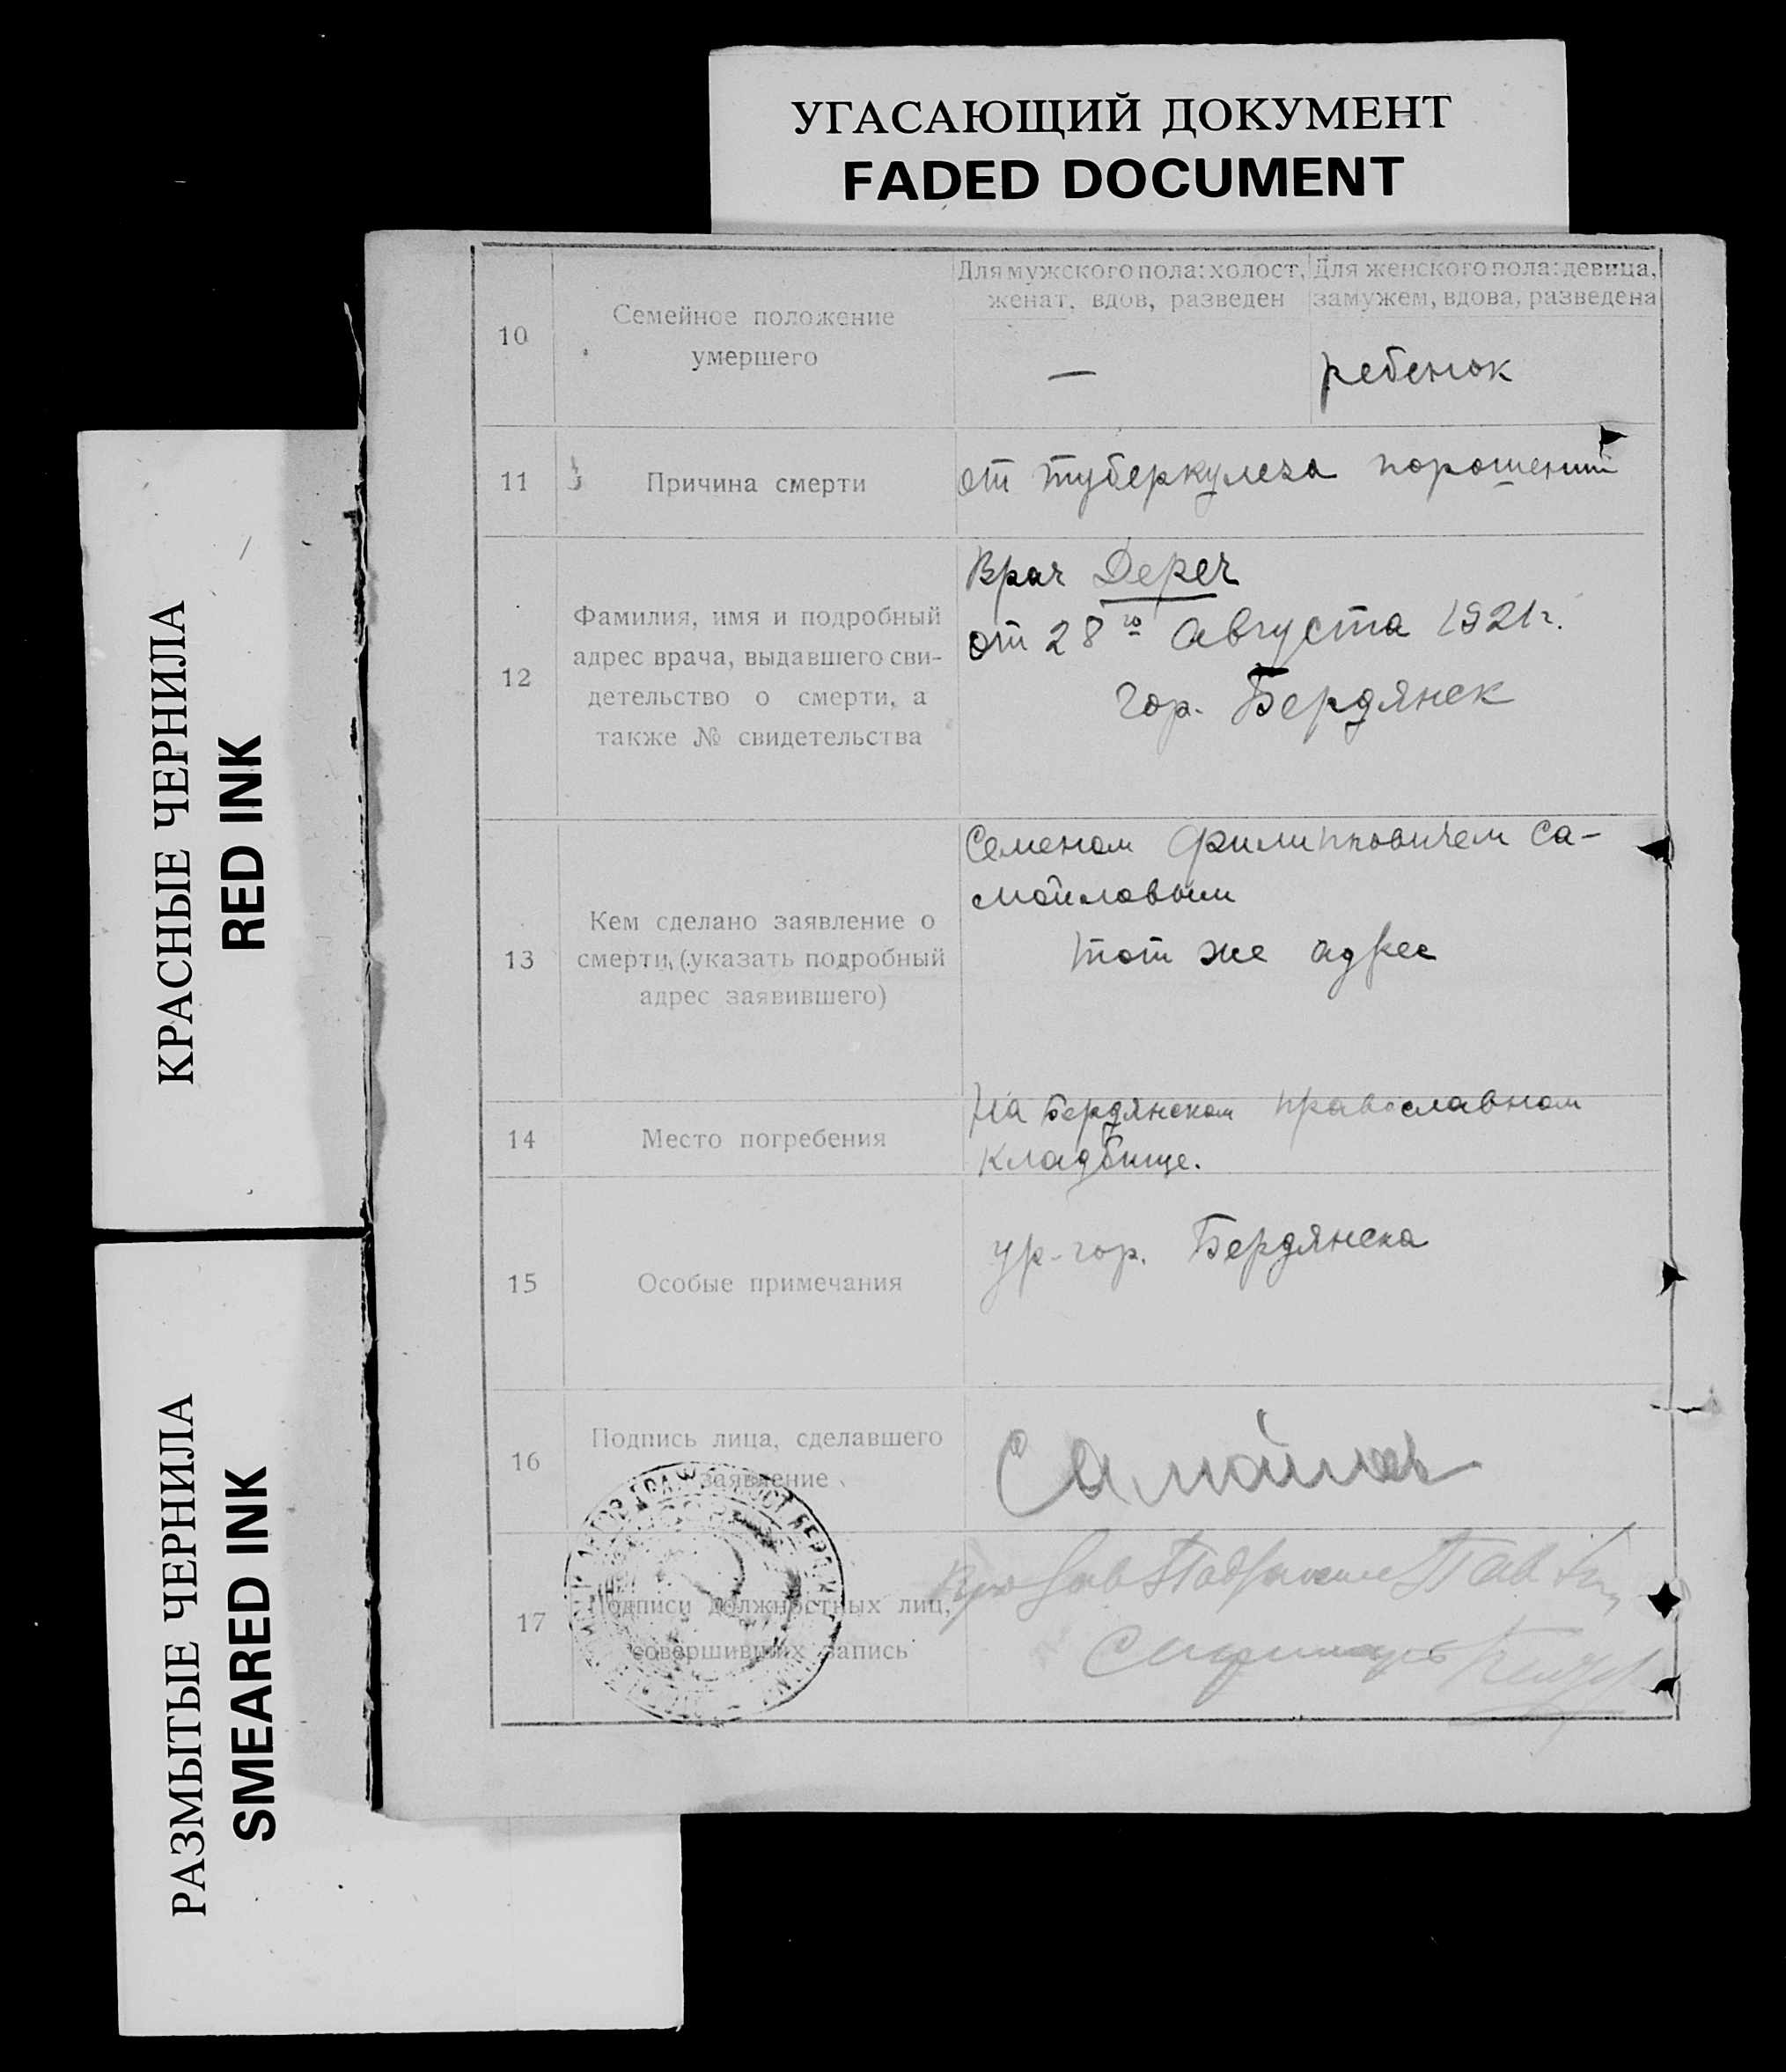 УГАСАЮЩИЙ ДОКУМЕНТ
FADED DOCUMENT
КРАСНЫЕ ЧЕРНИЛА
RED INK
РАЗМЫТЫЕ ЧЕРНИЛА
SMEARED INK
10
Семейное положение
умершего
Для мужского пола: холост,
женат, вдов, разведен
—
Для женского пола: девица,
замужем, вдова, разведена
ребенок
11
Причина смерти
от туберкулеза
12
Фамилия, имя и подробный
адрес врача, выдавшего сви-
детельство о смерти, а
также № свидетельства
Врач Дереч
от 28го Августа 1921г.
гор. Бердянск
13
Кем сделано заявление о
смерти, (указать подробный
адрес заявившего)
Семеном Филипповичем Са-
мойловым
тот же адрес
14
Место погребения
На Бердянском православном
кладбище.
15
Особые примечания
ур-гор. Бердянска
16
Подпись лица, сделавшего
заявление
Самойлов
17
Подписи должностных лиц,
совершивших запись